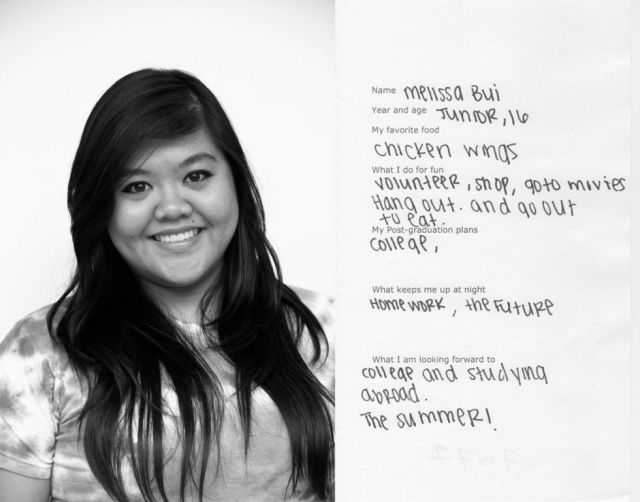 Name melissa Bui
Year and age JUNIOR, 16
My favorite food
chicken wings
What I do for fun
volunteer, shop, go to movies
Hang out. and go out
to eat.
My Post-graduation plans
college,
What keeps me up at night
Homework, the Future
What I am looking forward to
college and studying
abroad.
The summer!